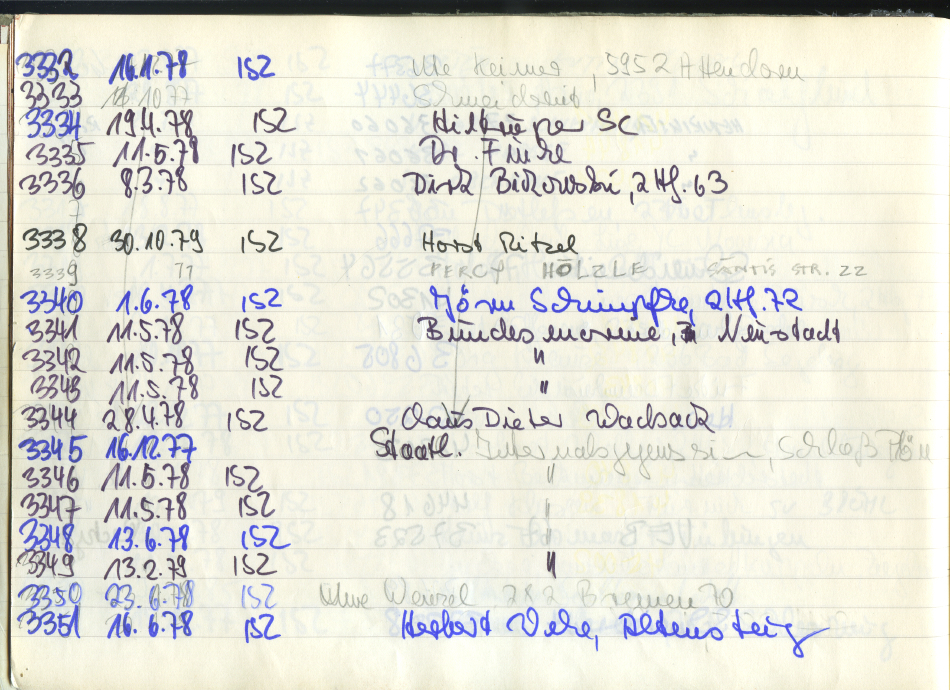 3332 16.1.78 ISZ Ute Keimer, 5952 Attendorn
3333 10.77 Schneider
3334 19.4.78 ISZ SC
3335 11.5.78 ISZ Dr. Finke
3336 8.3.78 ISZ Dirk Bikowski, 2 Hf. 63
3338 30.10.79 ISZ Horst Ritzel
3339 77 PERCY HÖLZLE SÄNTIS STR. 22
3340 1.6.78 ISZ Jörn Schimpfke, 2 Hf. 72
3341 11.5.78 ISZ Bundesmarine, Neustadt
3342 11.5.78 ISZ "
3343 11.5.78 ISZ "
3344 28.4.78 ISZ Claus Dieter Wacsack
3345 16.12.77 Staatl. Internatsgymnasium, Schloß Plön
3346 11.5.78 ISZ "
3347 11.5.78 ISZ "
3348 13.6.78 ISZ "
3349 13.2.79 ISZ "
3350 23.6.78 ISZ Uwe Wenzel 282 Bremen 70
3351 16.6.78 ISZ Herbert Altensteig